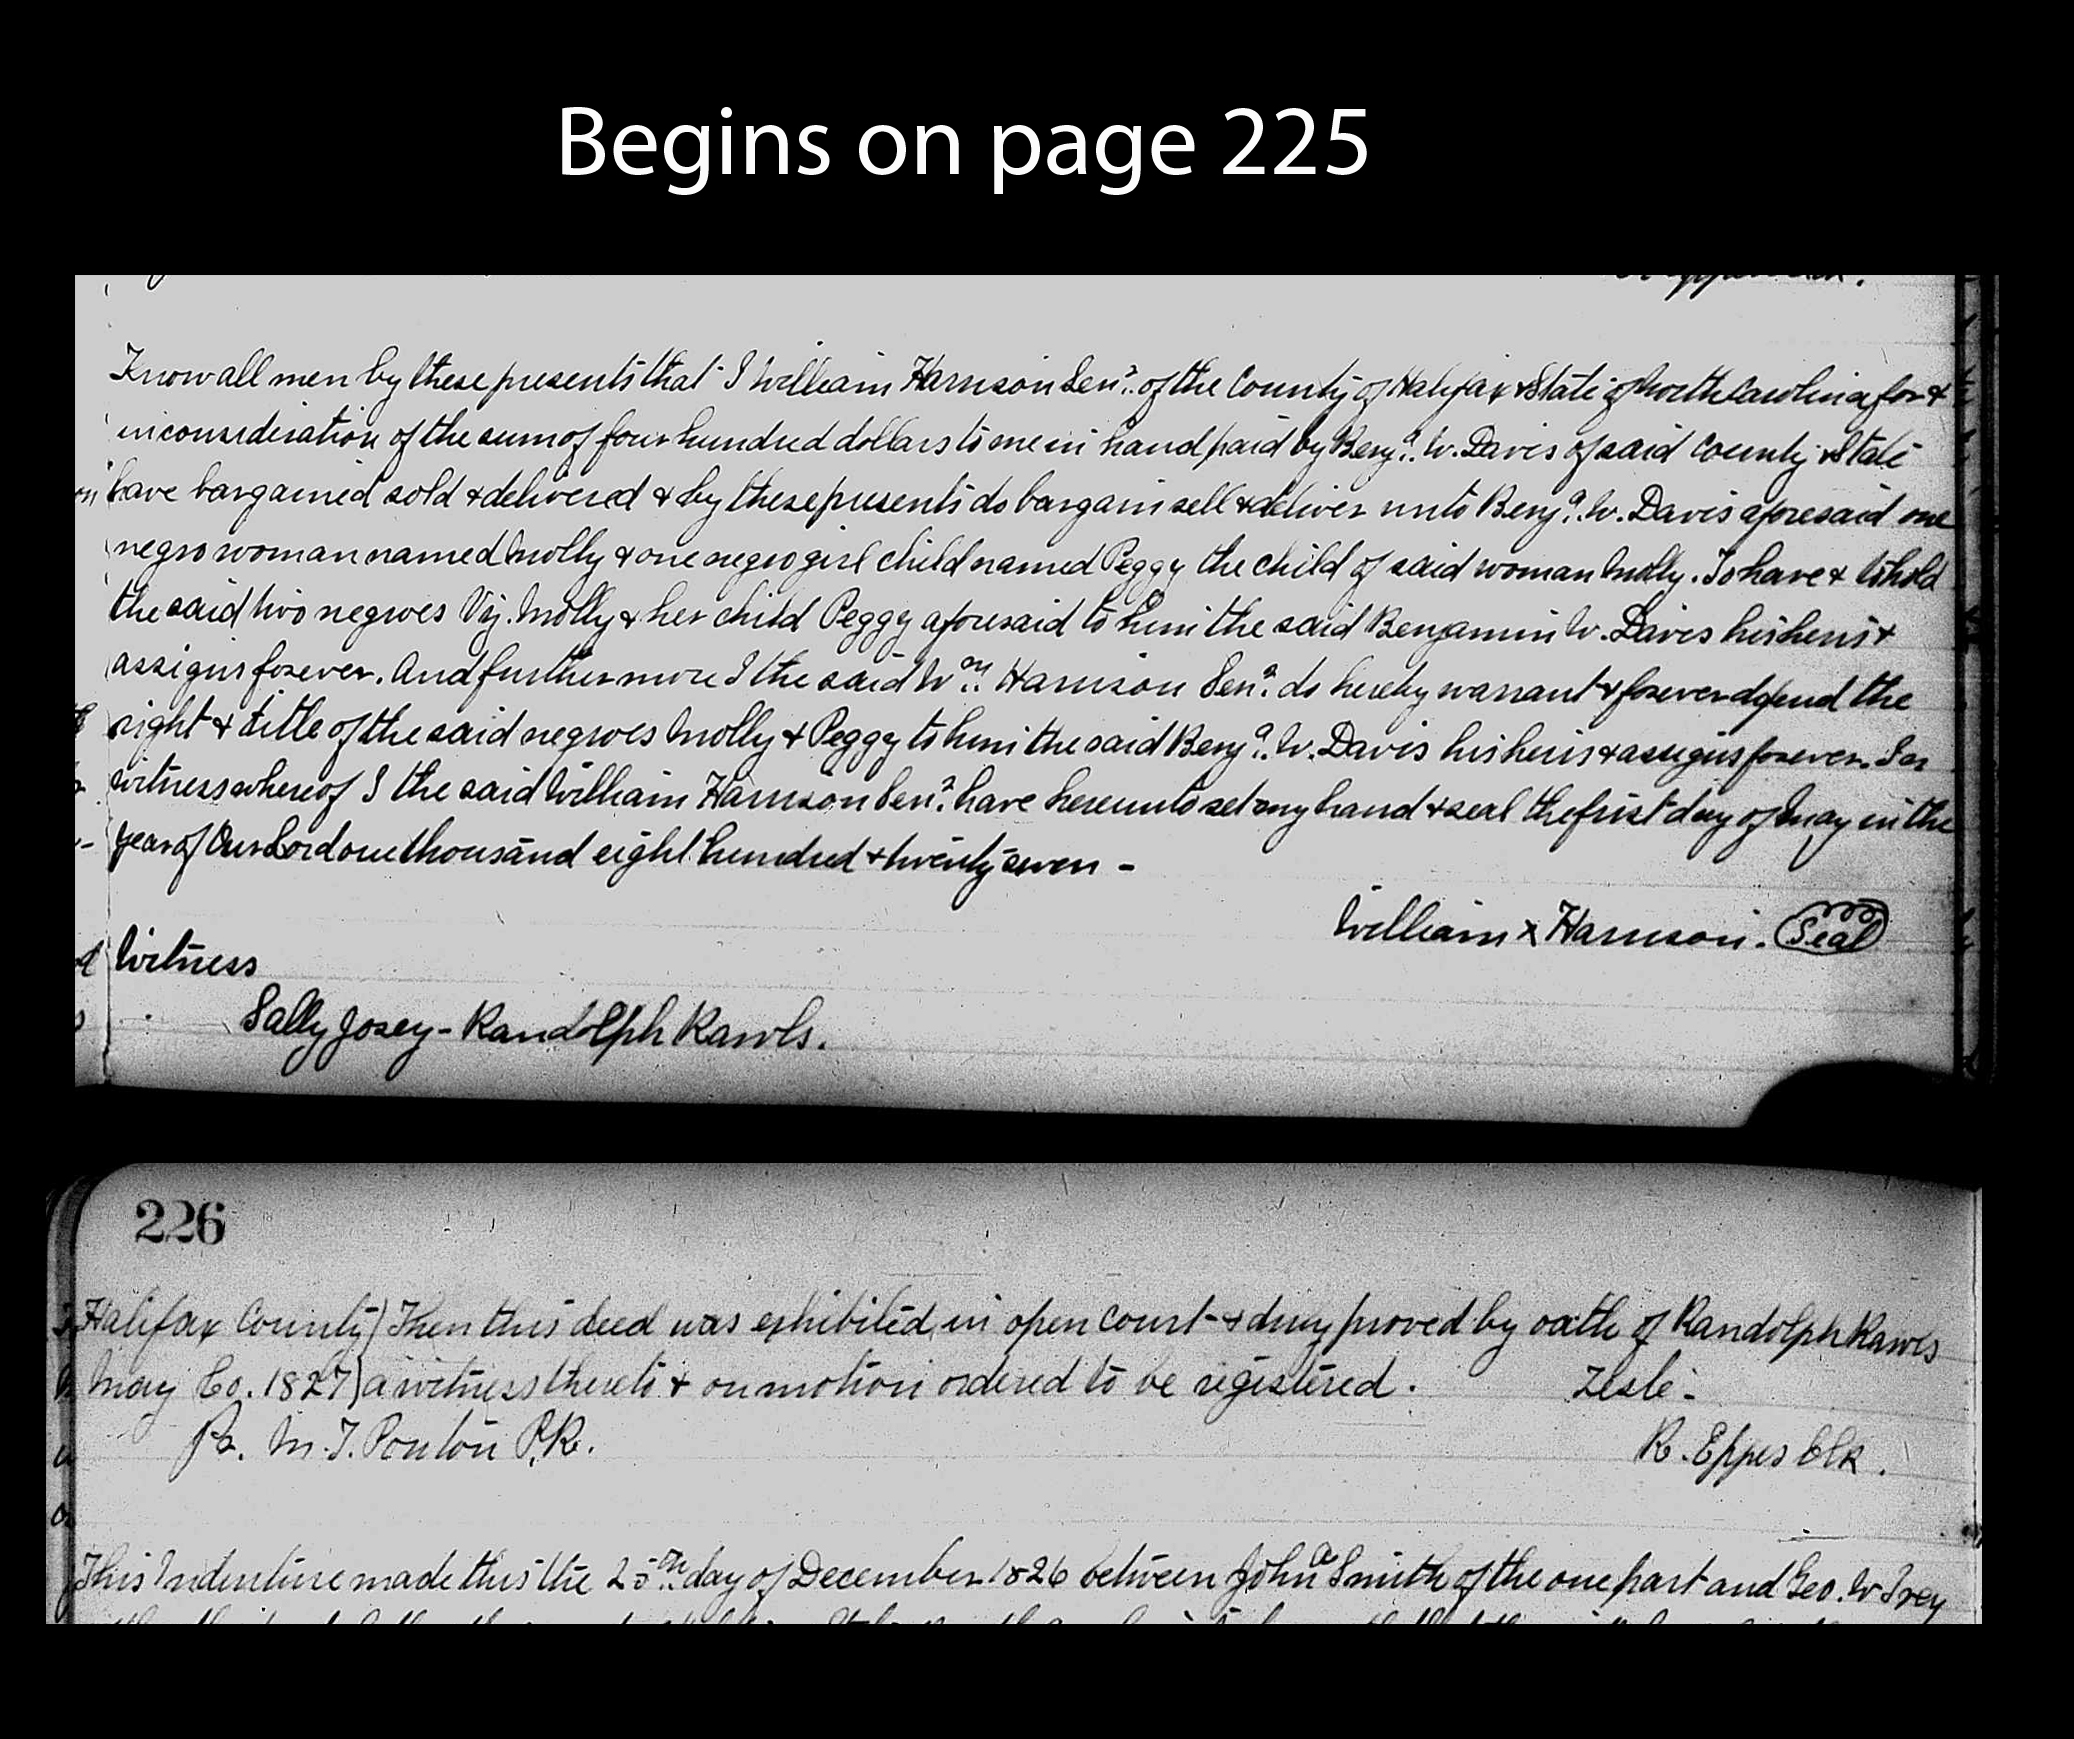 Begins on page 225
Know all men by these presents that I William Harrison Senr. of the County of Halifax & State of North Carolina for &
in consideration of the sum of four hundred dollars to me in hand paid by Benja. W. Davis of said County & State
have bargained sold & delivered & by these presents do bargain sell & deliver unto Benja. W. Davis aforesaid one
negro woman named Molly & one negro girl child named Peggy the child of said woman Molly. To have & to hold
the said two negroes Viz. Molly & her child Peggy aforesaid to him the said Benjamin W. Davis his heirs &
assigns forever. And furthermore I the said Wm. Harrison Senr. do hereby warrant & forever defend the
right & title of the said negroes Molly & Peggy to him the said Benja. W. Davis his heirs & assigns forever. In
witness whereof I the said William Harrison Senr. have hereunto set my hand & seal the first day of May in the
year of Our Lord one thousand eight hundred & twenty seven -
William x Harrison. Seal
Witness
Sally Josey - Randolph Rawls.
226
Halifax County) Then this deed was exhibited in open court & duly proved by oath of Randolph Rawls
May Co. 1827) a witness thereto & on motion ordered to be registered. Teste -
Pr. M. T. Ponton P.R. R. Eppes Clk.
This Indenture made this the 25th day of December 1826 between John a Smith of the one part and Geo. W Ivey